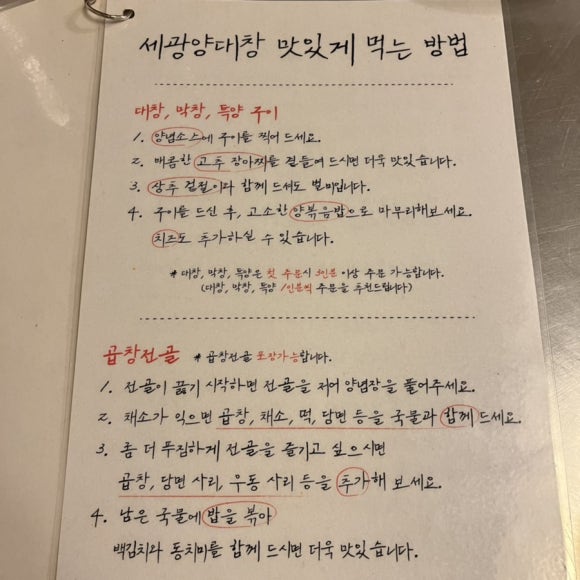 세광양대창 맛있게 먹는 방법
대창, 막창, 특양 구이
1. 양념소스에 구이를 찍어 드세요.
2. 매콤한 고추 장아찌를 곁들여 드시면 더욱 맛있습니다.
3. 상추 겉절이와 함께 드셔도 별미입니다.
4. 구이를 드신 후, 고소한 양볶음밥으로 마무리해보세요.
치즈도 추가하실 수 있습니다.
# 대창, 막창, 특양은 첫 주문시 3인분 이상 주문 가능합니다.
(대창, 막창, 특양 1인분씩 주문을 추천드립니다)
곱창전골 # 곱창전골 포장가능합니다.
1. 전골이 끓기 시작하면 전골을 저어 양념장을 풀어주세요.
2. 채소가 익으면 곱창, 채소, 떡, 당면 등을 국물과 함께 드세요.
3. 좀 더 푸짐하게 전골을 즐기고 싶으시면
곱창, 당면 사리, 우동 사리 등을 추가해 보세요.
4. 남은 국물에 밥을 볶아
백김치와 동치미를 함께 드시면 더욱 맛있습니다.